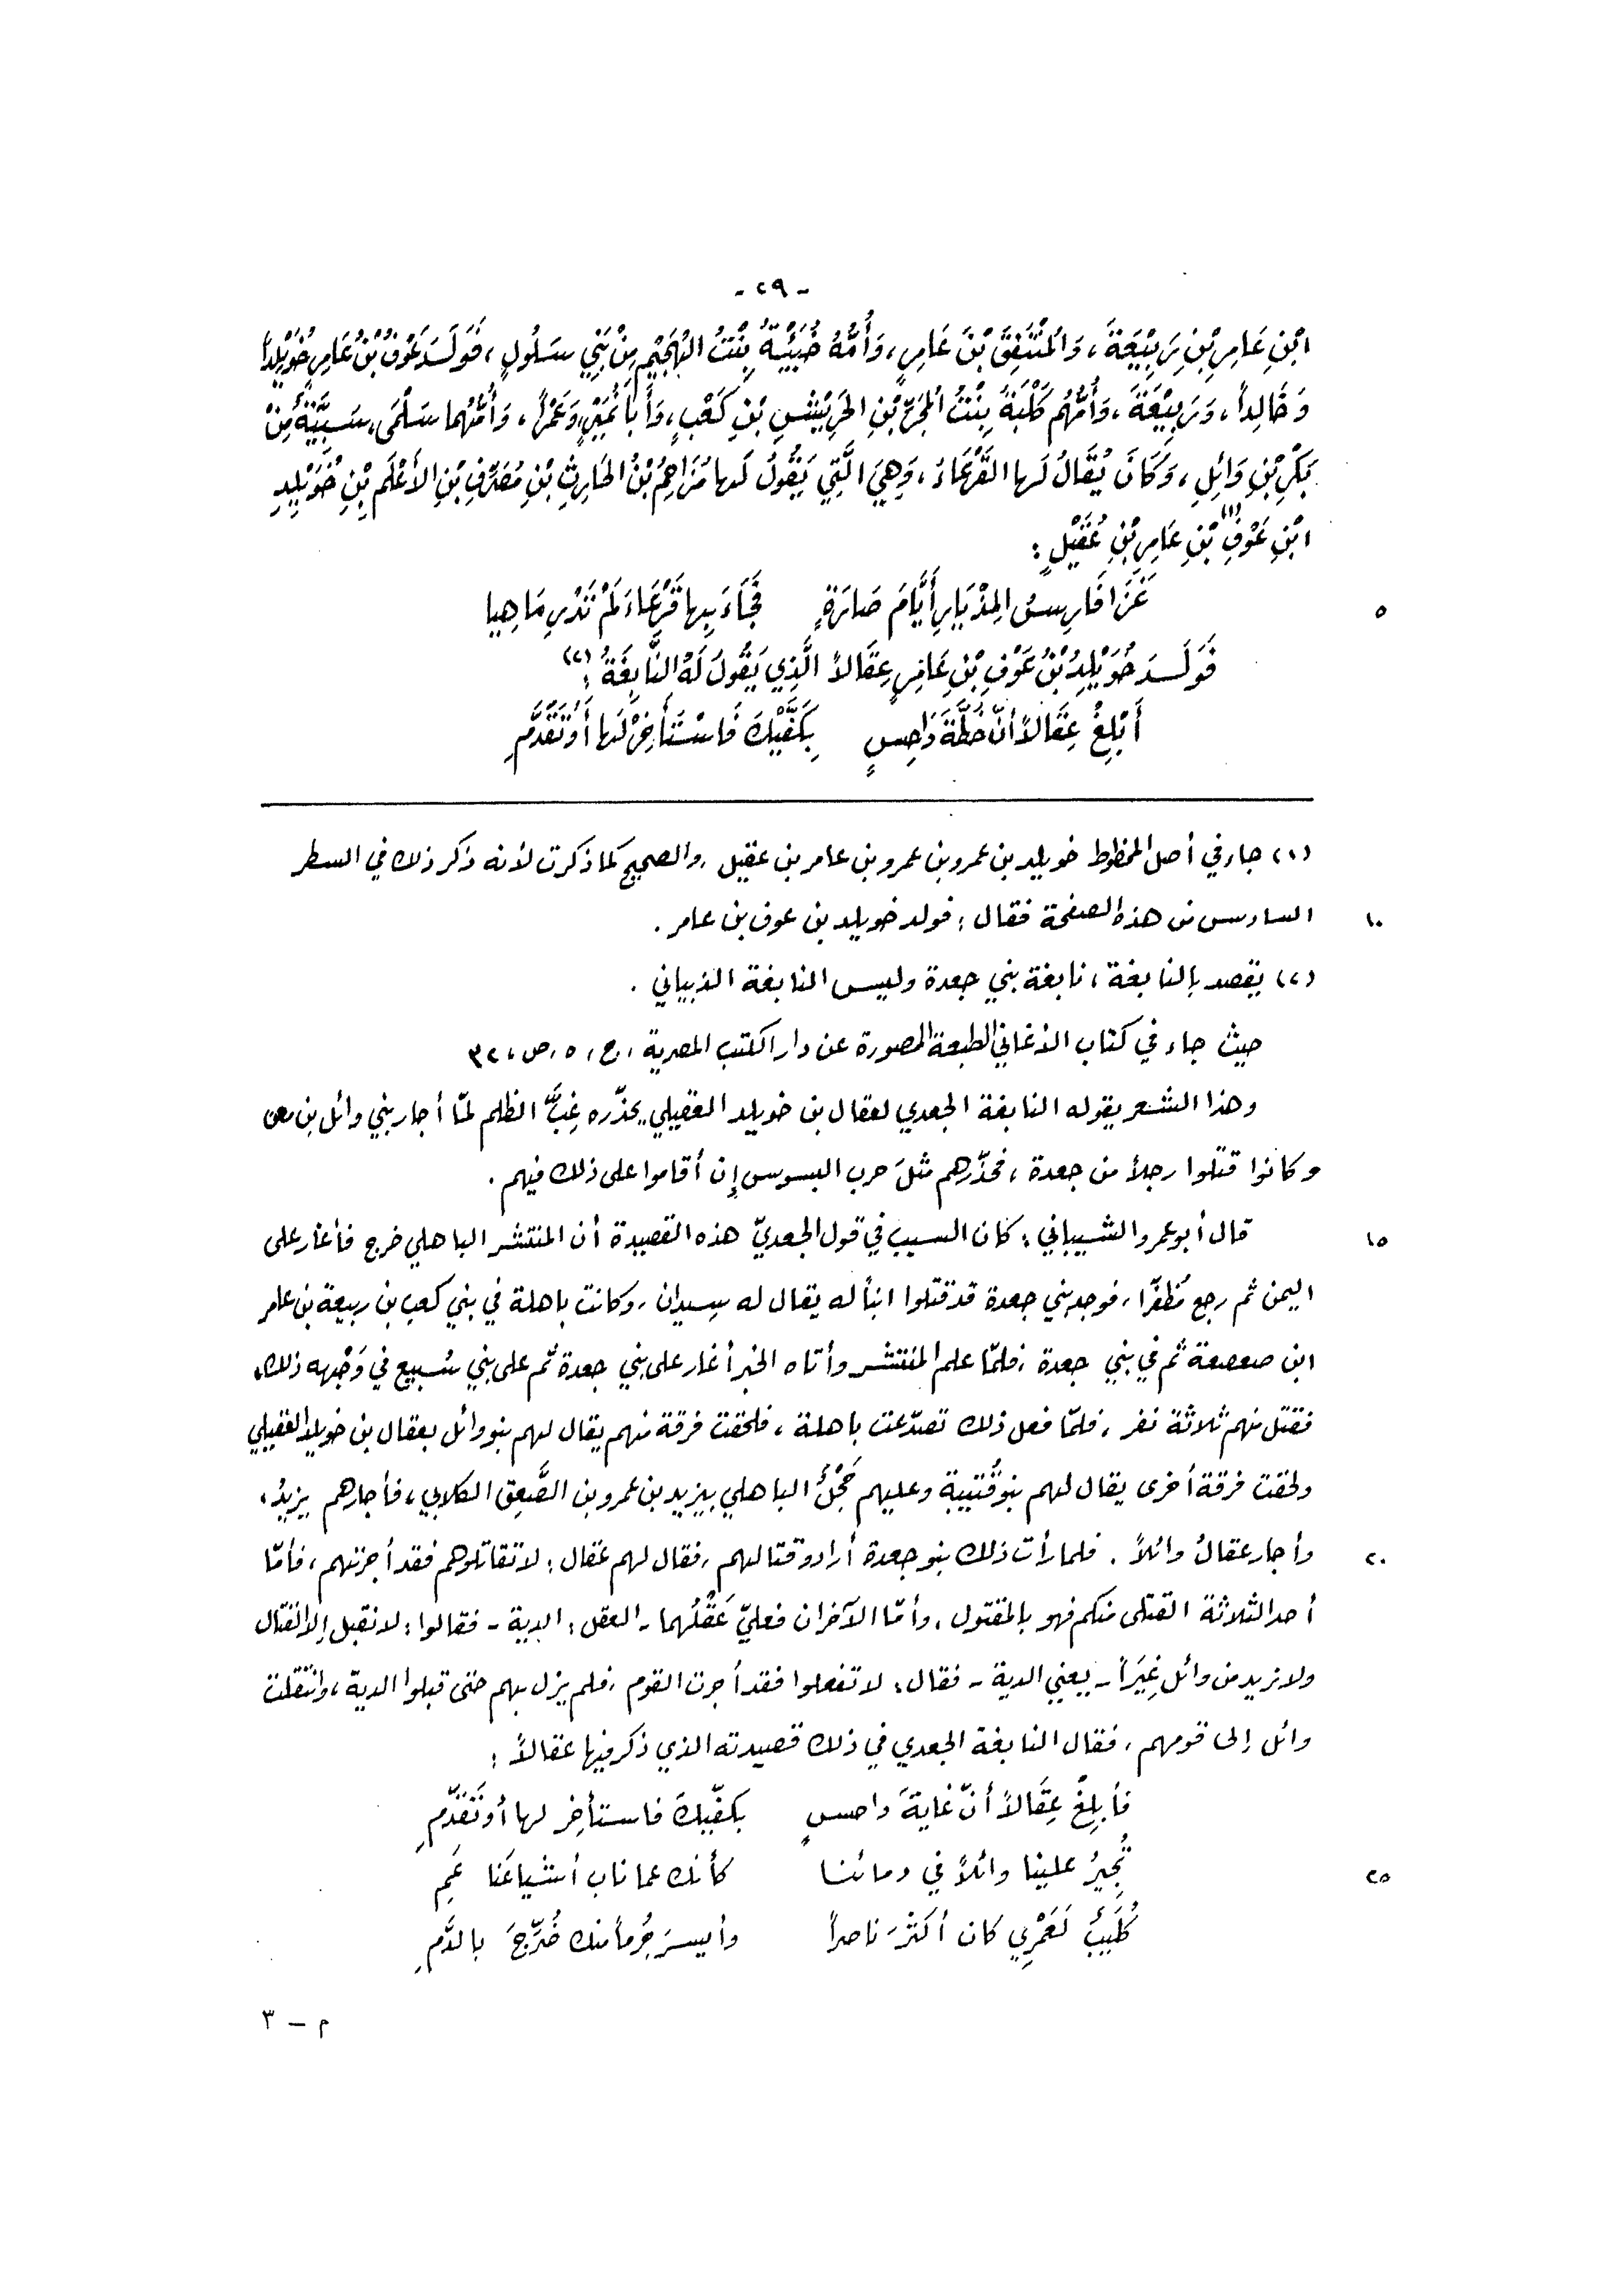 - ٢٩ -
ابْنِ عَامِرِ بْنِ رَبِيْعَةَ، وَالمُنْتَفِقَ بْنَ عَامِرٍ، وَأُمُّهُ خُبَيْئَةُ بِنْتُ الهُجَيْمِ مِنْ بَنِي سَلُولٍ، فَوَلَدَ عَوْفُ بْنُ عَامِرٍ خُوَيْلِداً
وَخَالِداً، وَرَبِيْعَةَ، وَأُمُّهُم كَلْبَةُ بِنْتُ المُجَرِّ بْنِ الحَرِيْشِ بْنِ كَعْبٍ، وَأَبَا نُمَيْرٍ، وَعَمْراً، وَأُمُّهُما سَلْمَى، سَبِيَّةٌ مِنْ
بَكْرِ بْنِ وَائِلٍ، وَكَانَ يُقَالُ لَها القَرْعَاءُ، وَهِيَ الَّتِي يَقُولُ لَها مُزَاحِمُ بْنُ الحَارِثِ بْنِ مُصَرِّفِ بْنِ الأَعْلَمِ بْنِ خُوَيْلِدِ
ابْنِ عَوْفِ (١) بْنِ عَامِرِ بْنِ عُقَيْلٍ :
غَزَا فَارِسُ المِذْيَارِ أَيَّامَ صَارَةٍ فَجَاءَ بِها قَرْعَاءَ لَمْ تَدْرِ مَا هِيا
٥
فَوَلَدَ خُوَيْلِدُ بْنُ عَوْفِ بْنِ عَامِرٍ عِقَالاً الَّذِي يَقُولُ لَهُ النَّابِغَةُ : (٢)
أَبْلِغْ عِقَالاً أنَّ خُطَّةَ دَاحِسٍ بِكَفَّيْكَ فَاسْتَأْخِرْ لَها أَوْ تَقَدَّمِ
(١) جاء في أصل المخطوط خويلد بن عمرو بن عمرو بن عامر بن عقيل، والصحيح كما ذكرت لأنه ذكر ذلك في السطر
السادس من هذه الصفحة فقال : فولد خويلد بن عوف بن عامر .
١٠
(٢) يقصد بالنابغة، نابغة بني جعدة وليس النابغة الذبياني .
حيث جاء في كتاب الأغاني الطبعة المصورة عن دار الكتب المصرية، ج، ٥، ص، ٣٢
وهذا الشعر يقوله النابغة الجعدي لعقال بن خويلد العقيلي يحذّره غِبَّ الظلم لمّا أجار بني وائل بن معن
وكانوا قتلوا رجلاً من جعدة، فحذّرهم مثلَ حرب البسوس إن أقاموا على ذلك فيهم .
قال أبو عمرو الشيباني : كان السبب في قول الجعديّ هذه القصيدة أن المنتشر الباهلي خرج فأغار على
١٥
اليمن ثم رجع مُظفَّرا، فوجد بني جعدة قد قتلوا ابناً له يقال له سيدان، وكانت باهلة في بني كعب بن ربيعة بن عامر
ابن صعصعة ثم في بني جعدة، فلمّا علم المنتشر وأتاه الخبر أغار على بني جعدة ثم على بني سُبيع في وَجْهه ذلك،
فقتل منهم ثلاثة نفر، فلمّا فعل ذلك تصدّعت باهلة، فلحقت فرقة منهم يقال لهم بنو وائل بعقال بن خويلد العقيلي
ولحقت فرقة أخرى يقال لهم بنو قُتيبة وعليهم حَجْلٌ الباهلي بيزيد بن عمرو بن الصَّعِق الكلابي، فأجارهم يزيدُ،
وأجار عقالُ وائلاً . فلما رأت ذلك بنو جعدة أرادو قتالهم، فقال لهم عقال : لا تقاتلوهم فقد أجرتهم، فأمّا
٢٠
أحد الثلاثة القتلى منكم فهو بالمقتول، وأمّا الآخران فعليّ عَقْلُهما - العقل : الدية - فقالوا : لا نقبل إلا القتال
ولا نريد من وائل غِيَراً - يعني الدية - فقال : لا تفعلوا فقد أجرت القوم، فلم يزل بهم حتى قبلوا الدية، وانتقلت
وائل إلى قومهم، فقال النابغة الجعدي في ذلك قصيدته الذي ذكر فيها عقالاً :
فأبلِغْ عِقَالاً أنّ غايةَ داحسٍ بكفّيكَ فاستأخِر لها أو تَقَدّمِ
تُجِيرُ علينا وائلاً في دمائنا كأنك عما ناب أشياعَنا عَمِ
٢٥
كُلَيبٌ لَعَمْرِي كان أكثرَ ناصراً وأيسرَ جُرماً منك ضُرِّجَ بالدَّمِ
م - ٣